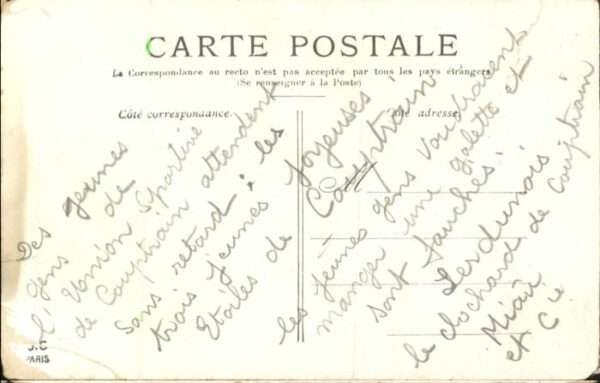 CARTE POSTALE
La Correspondance au recto n'est pas acceptée par tous les pays étrangers
(Se renseigner à la Poste)
Côté correspondance.
Côté adresse.
M
Des jeunes
gens de
l'Union Sportive
de Couptrain attendent
Sans retard, les
trois jeunes
Etoiles de
joyeuses
Couptrain
les jeunes gens voudraient
manger une galette et
sont fauchés.
Lesdunois
le clochard de Couptrain
Miaü
et Cie
J.C
PARIS